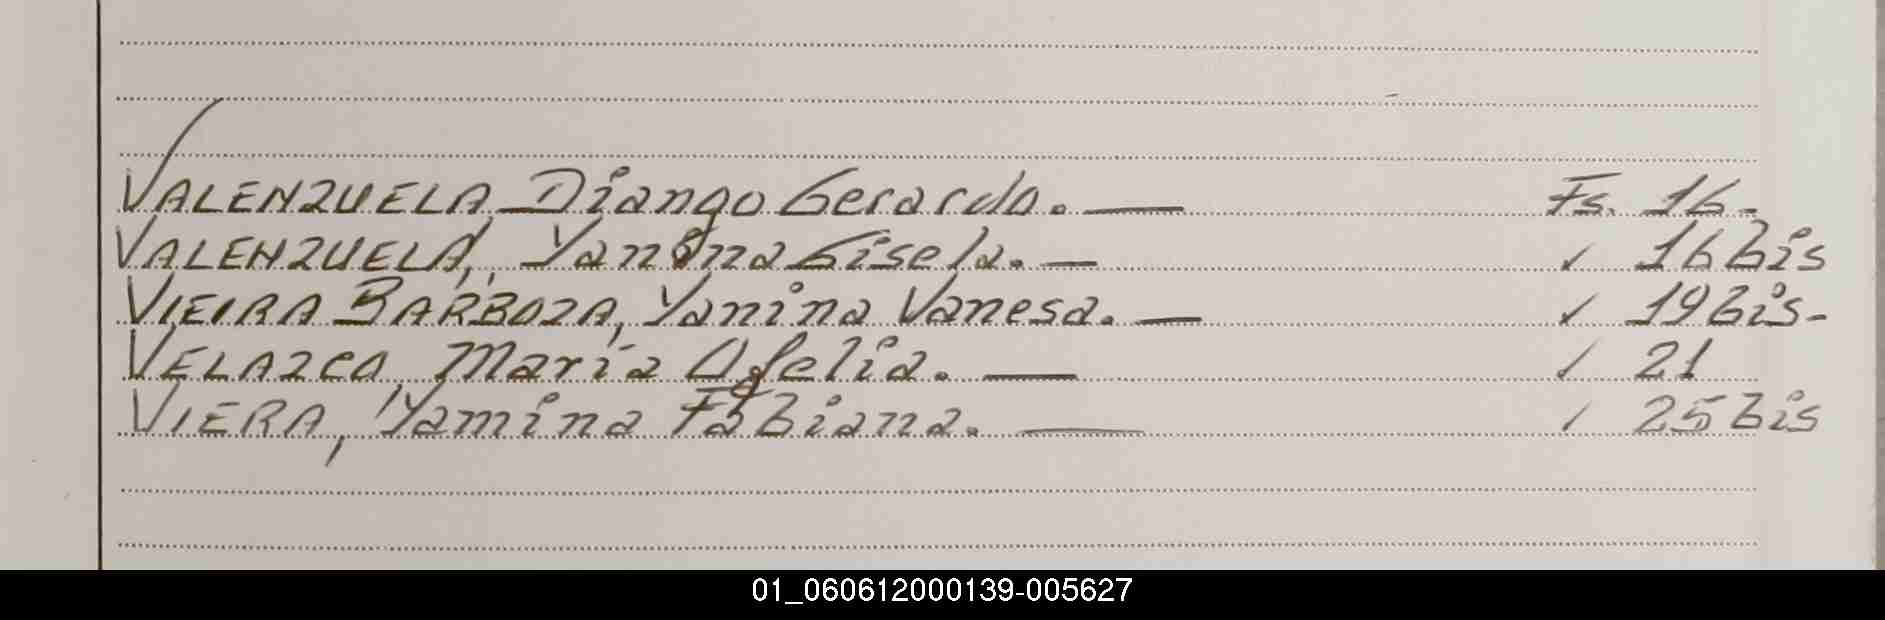 VALENZUELA, Diango Gerardo. — Fs. 16-
VALENZUELA, Yanina Gisela. — ✓ 16 bis
VIEIRA BARBOZA, Yanina Vanesa. — ✓ 19 bis-
VELAZCO, María Ofelia. — / 21
VIERA, Yamina Fabiana. — / 25 bis
01_060612000139-005627